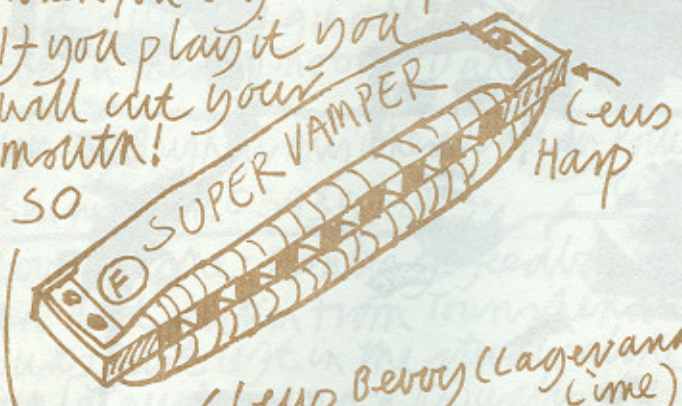 If you play it you
will cut your
mouth!
SO
SUPER VAMPER
F
Leus
Harp
Leus Bevvy (Lager and
Lime)